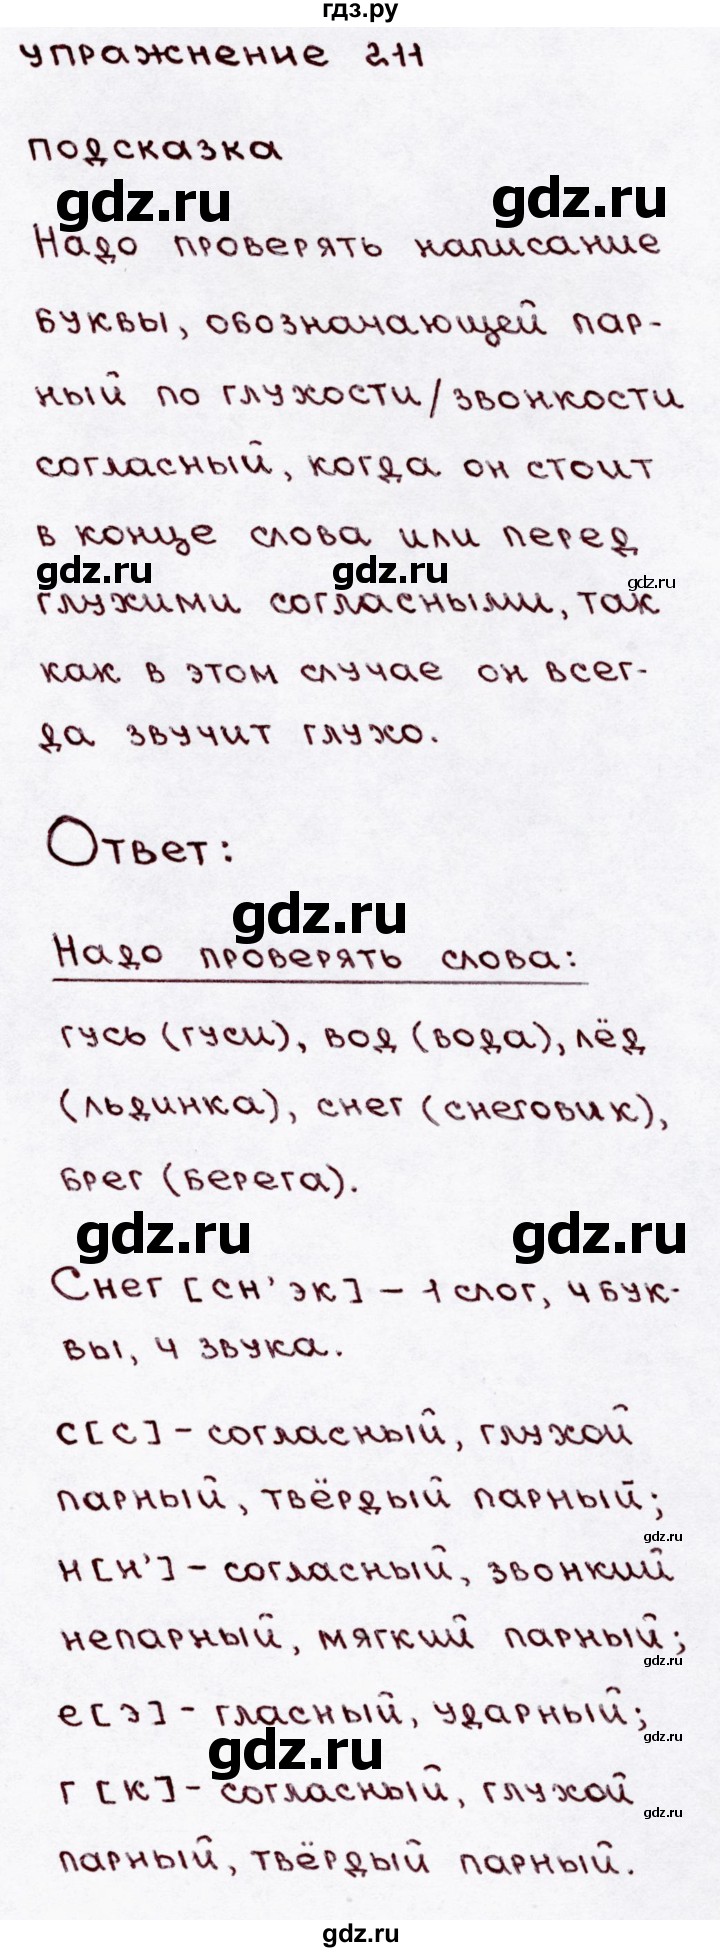 гдз.ру
упражнение 211
подсказка
gdz.ru gdz.ru
Надо проверять написание
буквы, обозначающей пар-
ный по глухости/звонкости
согласный, когда он стоит
в конце слова или перед
gdz.ru gdz.ru gdz.ru
глухими согласными, так
как в этом случае он всег-
да звучит глухо.
Ответ:
gdz.ru
Надо проверять слова:
гусь (гуси), вод (вода), лёд
(льдинка), снег (снеговик),
брег (берега).
gdz.ru gdz.ru
Снег [сн'эк] – 1 слог, 4 бук-
вы, 4 звука.
с [с] – согласный, глухой
парный, твёрдый парный;
gdz.ru
н [н'] – согласный, звонкий
непарный, мягкий парный;
gdz.ru
е [э] – гласный, ударный;
gdz.ru gdz.ru
г [к] – согласный, глухой
gdz.ru
парный, твёрдый парный.
gdz.ru